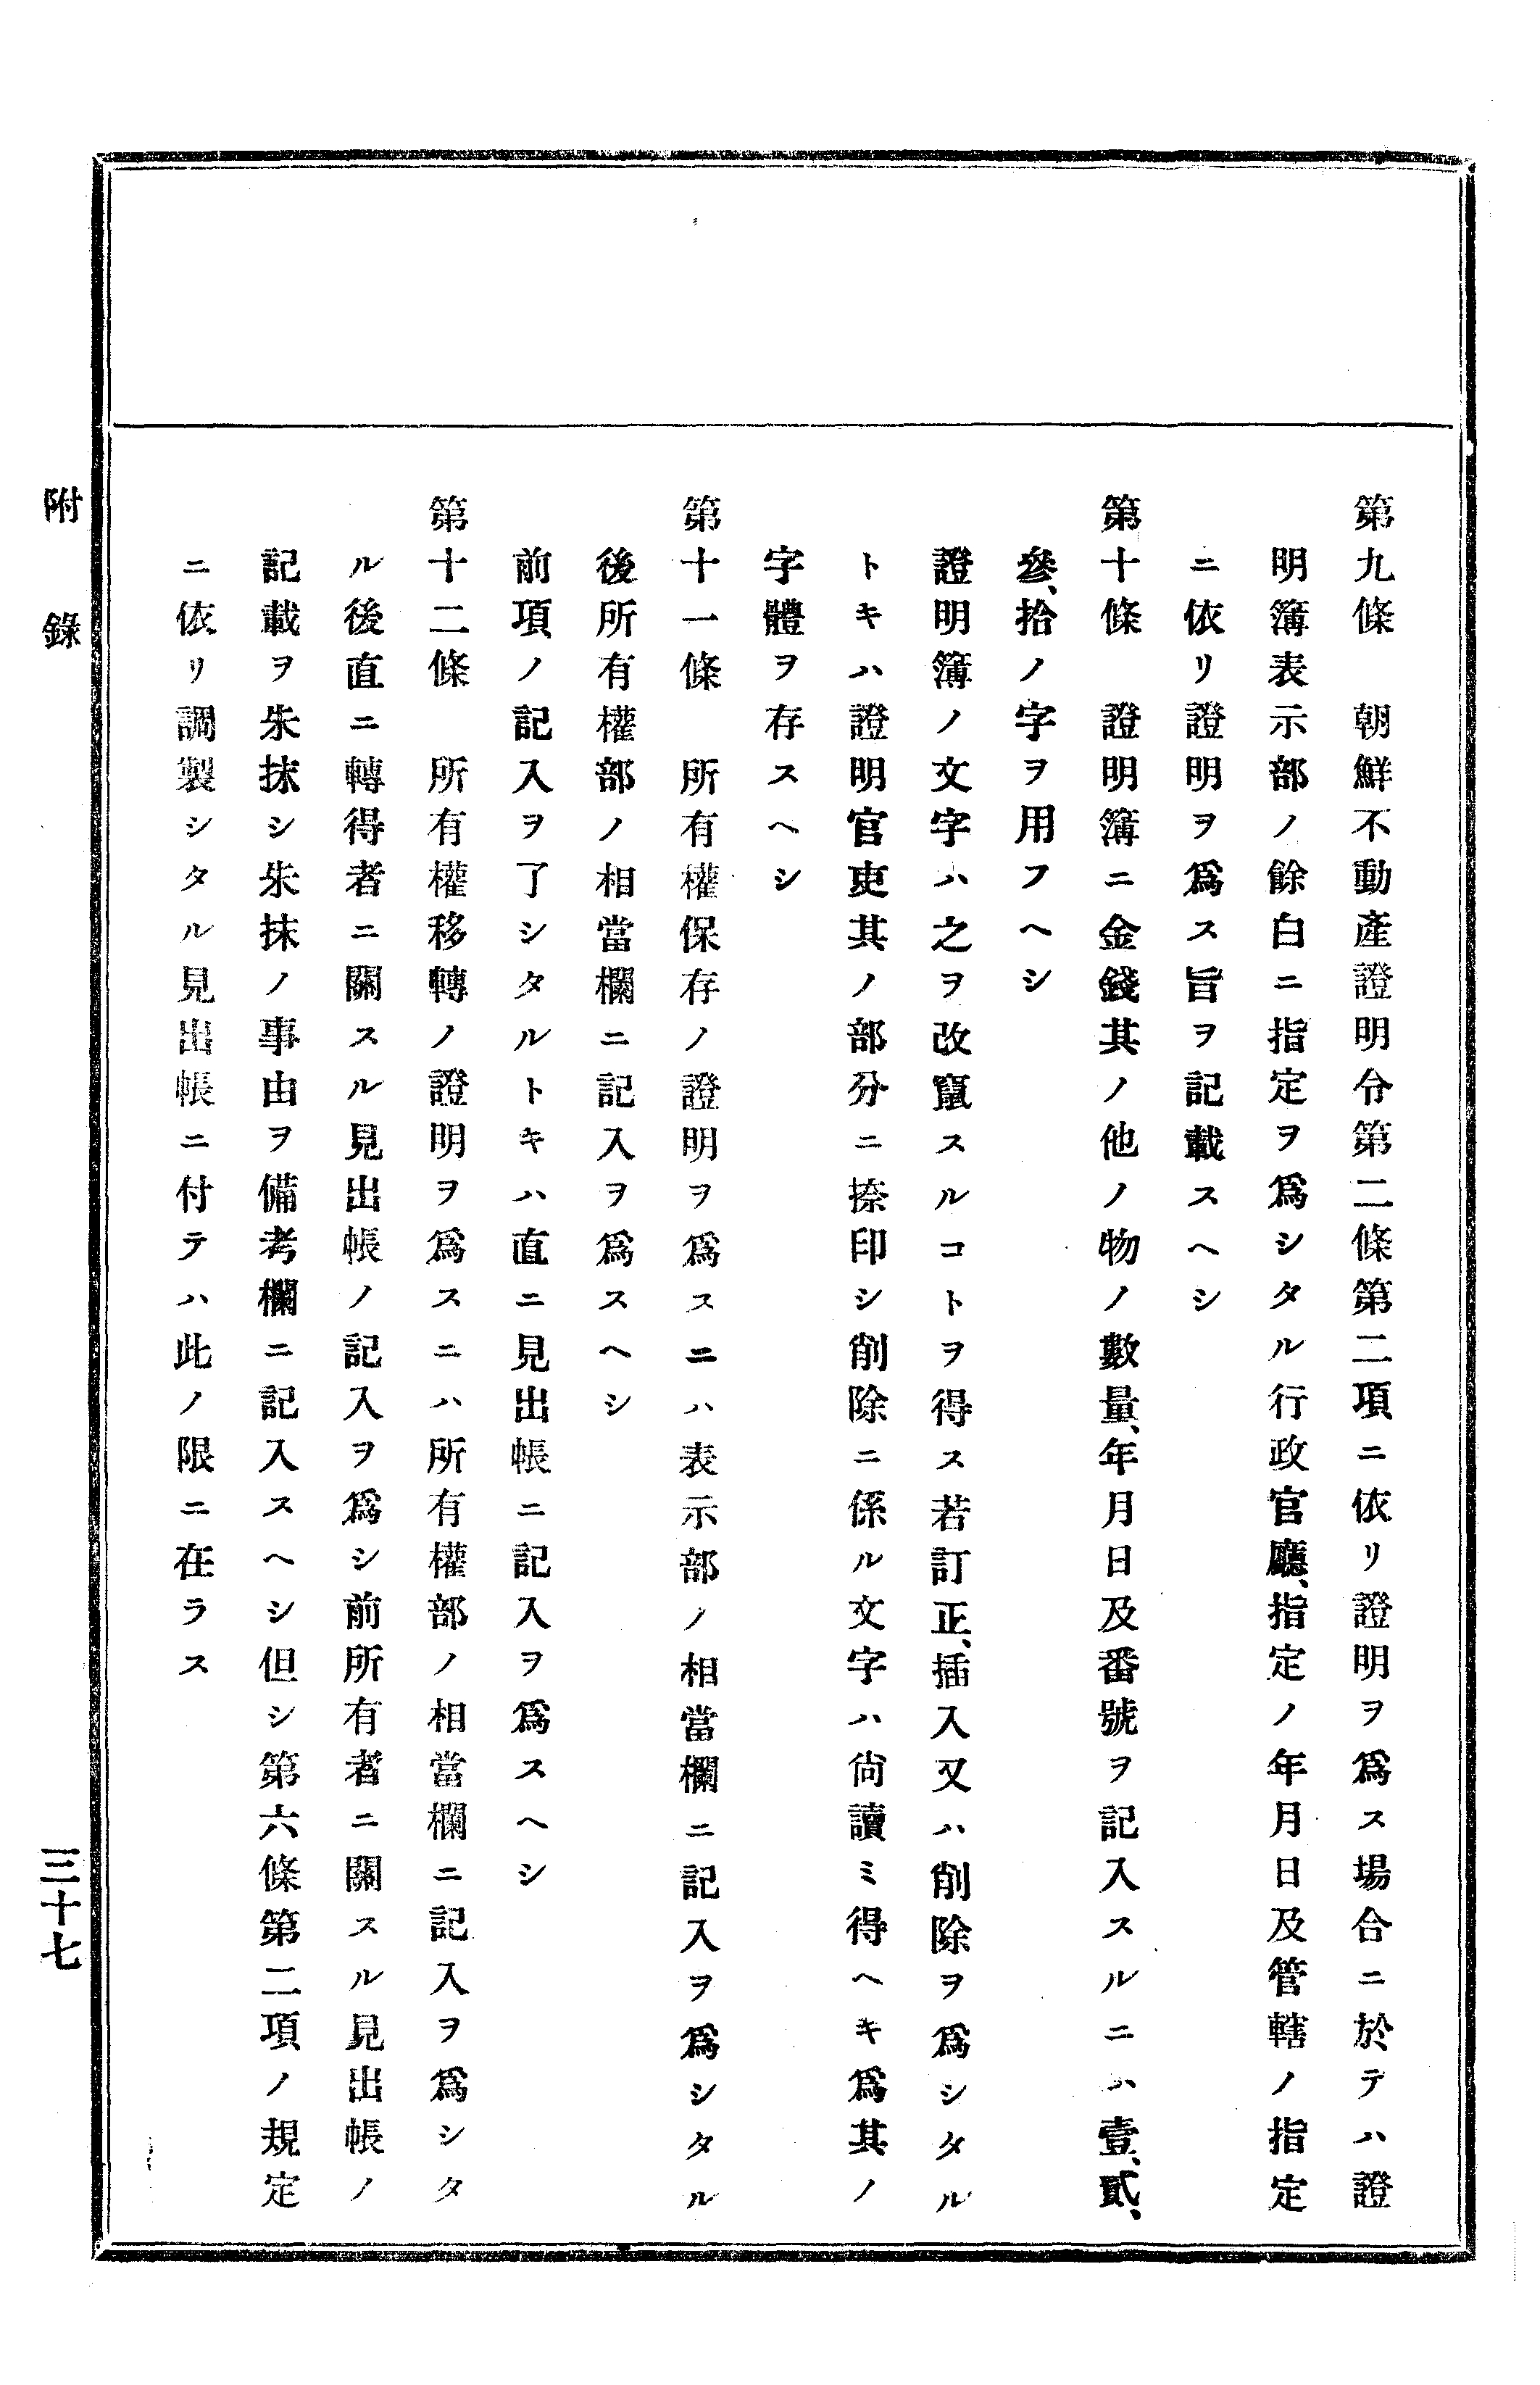 第九條　朝鮮不動產證明令第二條第二項ニ依リ證明ヲ爲ス場合ニ於テハ證
明簿表示部ノ餘白ニ指定ヲ爲シタル行政官廳、指定ノ年月日及管轄ノ指定
ニ依リ證明ヲ爲ス旨ヲ記載スヘシ
第十條　證明簿ニ金錢其ノ他ノ物ノ數量、年月日及番號ヲ記入スルニハ壹、貳、
參、拾ノ字ヲ用フヘシ
證明簿ノ文字ハ之ヲ改竄スルコトヲ得ス若訂正、插入又ハ削除ヲ爲シタル
トキハ證明官吏其ノ部分ニ捺印シ削除ニ係ル文字ハ尙讀ミ得ヘキ爲其ノ
字體ヲ存スヘシ
第十一條　所有權保存ノ證明ヲ爲スニハ表示部ノ相當欄ニ記入ヲ爲シタル
後所有權部ノ相當欄ニ記入ヲ爲スヘシ
前項ノ記入ヲ了シタルトキハ直ニ見出帳ニ記入ヲ爲スヘシ
第十二條　所有權移轉ノ證明ヲ爲スニハ所有權部ノ相當欄ニ記入ヲ爲シタ
ル後直ニ轉得者ニ關スル見出帳ノ記入ヲ爲シ前所有者ニ關スル見出帳ノ
記載ヲ朱抹シ朱抹ノ事由ヲ備考欄ニ記入スヘシ但シ第六條第二項ノ規定
ニ依リ調製シタル見出帳ニ付テハ此ノ限ニ在ラス
附錄
三十七